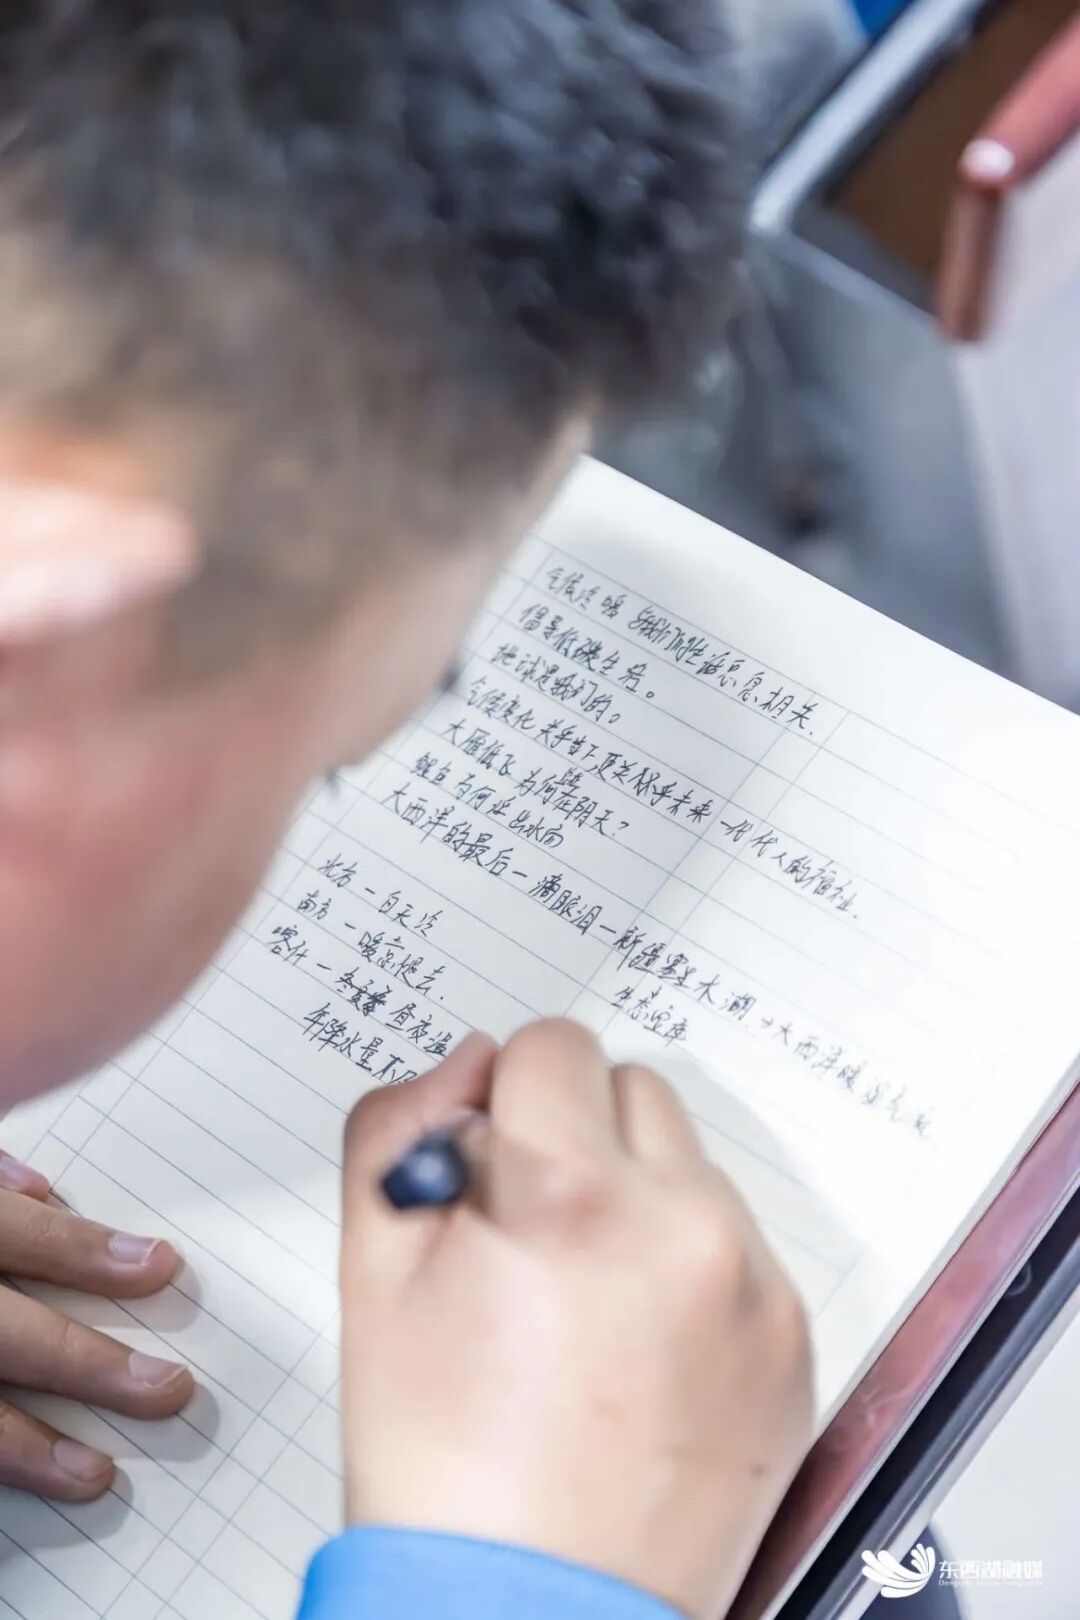 气候冷暖与我们的生活息息相关.
倡导低碳生活。
地球是我们的。
气候变化关乎当下,更关乎未来一代代人的福祉.
大雁低飞为何在阴天?
鲤鱼为何浮出水面
大西洋的最后一滴眼泪—新疆赛里木湖.→大西洋暖湿气流
生态宝库
北方—白天冷
南方—暖意褪去.
喀什—昼夜温
年降水量
东西湖融媒